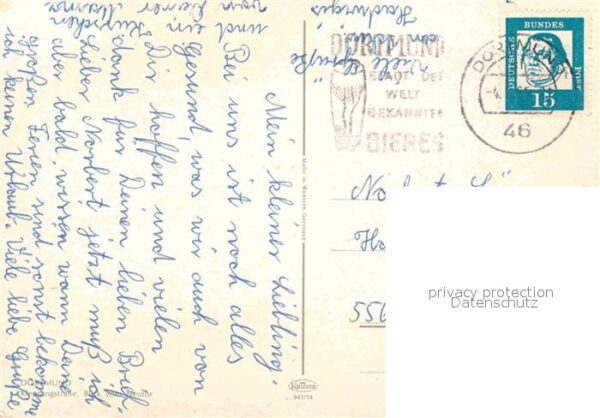 Mein kleiner Liebling!
Bei uns ist noch alles
Gesund, was wir auch von
Dir hoffen und vielen
dank für Deinen lieben Brief.
Lieber Norbert jetzt muß ich
aber bald wissen wann Deine
großen Ferien sind sonst bekomm
ich keinen Urlaub. Viele liebe Grüße
und ein Küßchen
von Deiner Mama
Viele Grüße
Hedwigis
DORTMUND
STADT DER
WELT
BEKANNTEN
BIERES
DORTMUND
46
DEUTSCHE BUNDES POST
15
Made in Western Germany
Krüger
941/14
556
privacy protection
Datenschutz
DORTMUND
Blick vom Neutor